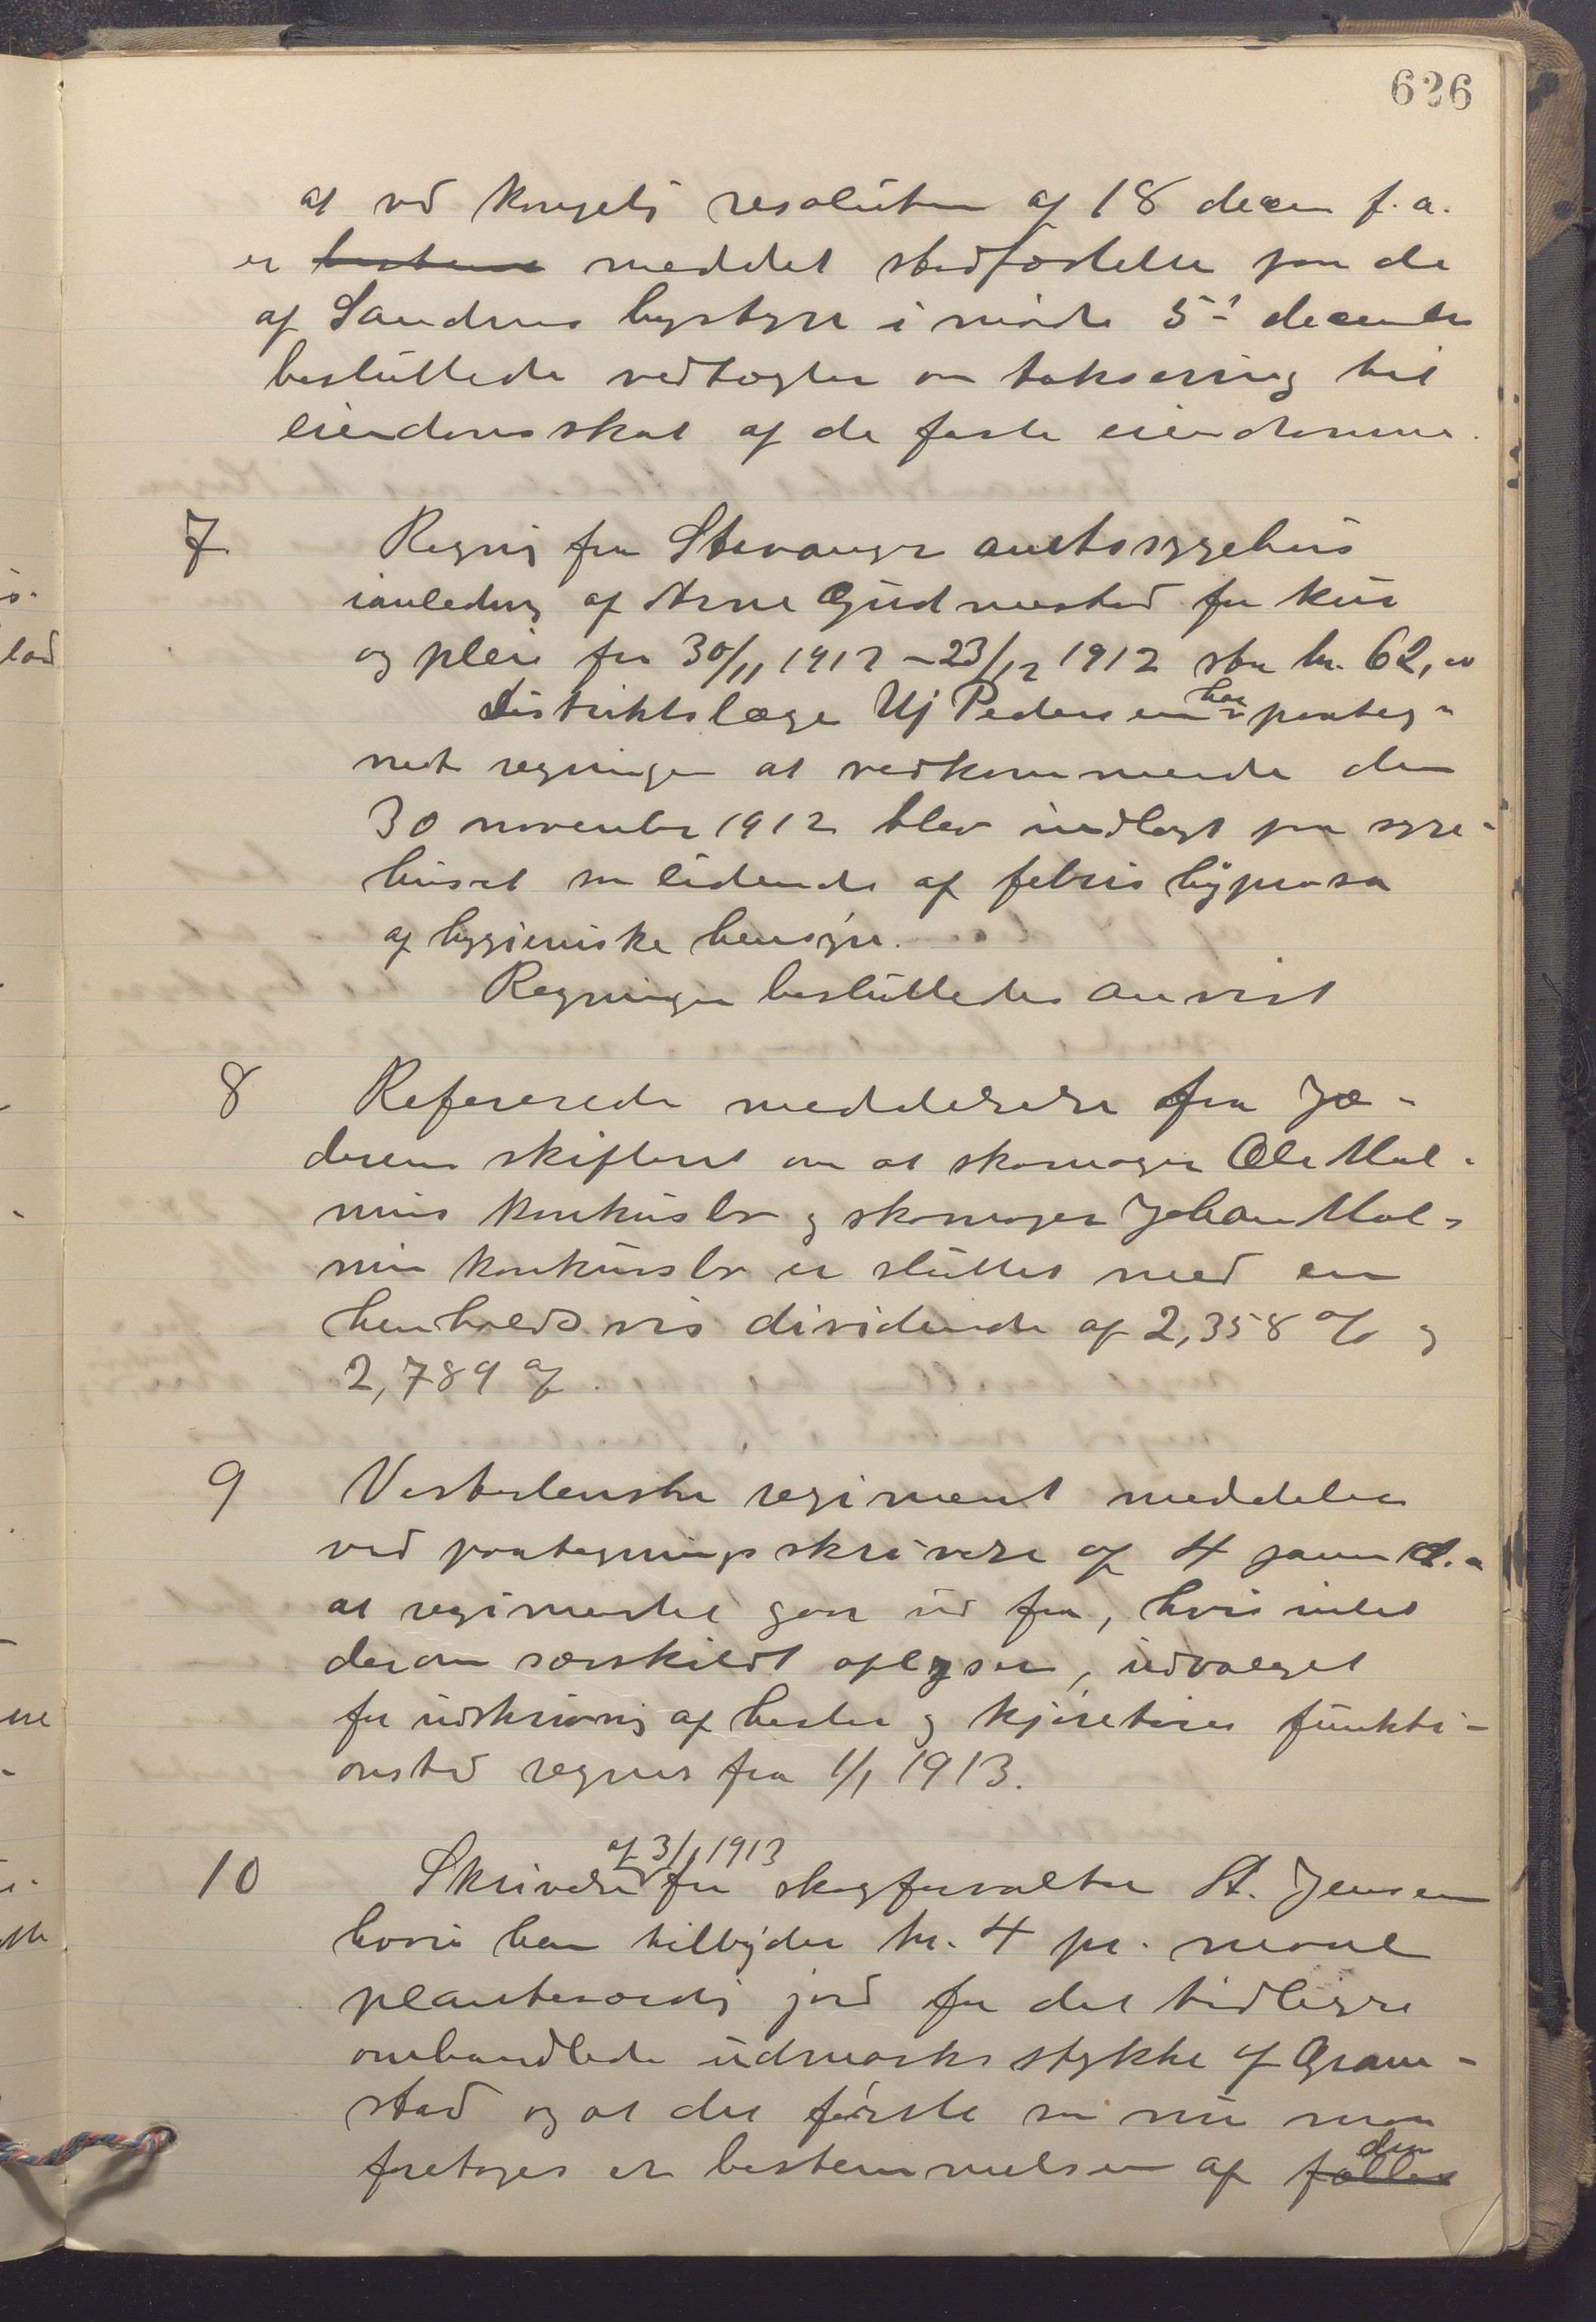 626
at ved kongelig resolution af 18 decem f.a.
er bestemt meddelt stadfæstelse paa de
af Sandnes bystyre i møde 5te december
besluttede vedtægter om taksering til
eiendomsskat af de faste eiendomme.
7 Regning fra Stavanger amtssygehus
ianledning af Arne Gudmestad for kur
og pleie fra 30/11 1912 - 23/12 1912 stor kr. 62,00
Distriktslæge Uj Pedersen har paateg-
net regningen at vedkommende den
30 november 1912 blev indlagt paa syge-
huset som lidende af febris
af hygieniske hensyn.
Regningen besluttedes anvist
8 Refererede meddelelse fra Jæ-
derens skifteret om at skomager Ole Mal-
mins konkursbo og skomager Johan Mal-
mins konkursbo er sluttet med en
henholdsvis dividende af 2,358 % og
2,789 %.
9 Vesterlenske regiment meddeler
ved paategningsskrivelse af 4 januar d.a.
at regimentet gaar ud fra, hvis intet
derom særskildt oplyses, udvalget
for udskrivning af heste og kjøretøiers funkti-
onstid regnes fra 1/1 1913.
af 3/1 1913
10 Skrivelse fra skogforvalter St. Jensen
hvori han tilbyder kr. 4 pr. maal
planteværdig jord for det tidligere
omhandlede udmarks stykke af Gram-
stad og at det første som nu maa
den
foretages er bestemmelsen af fælles